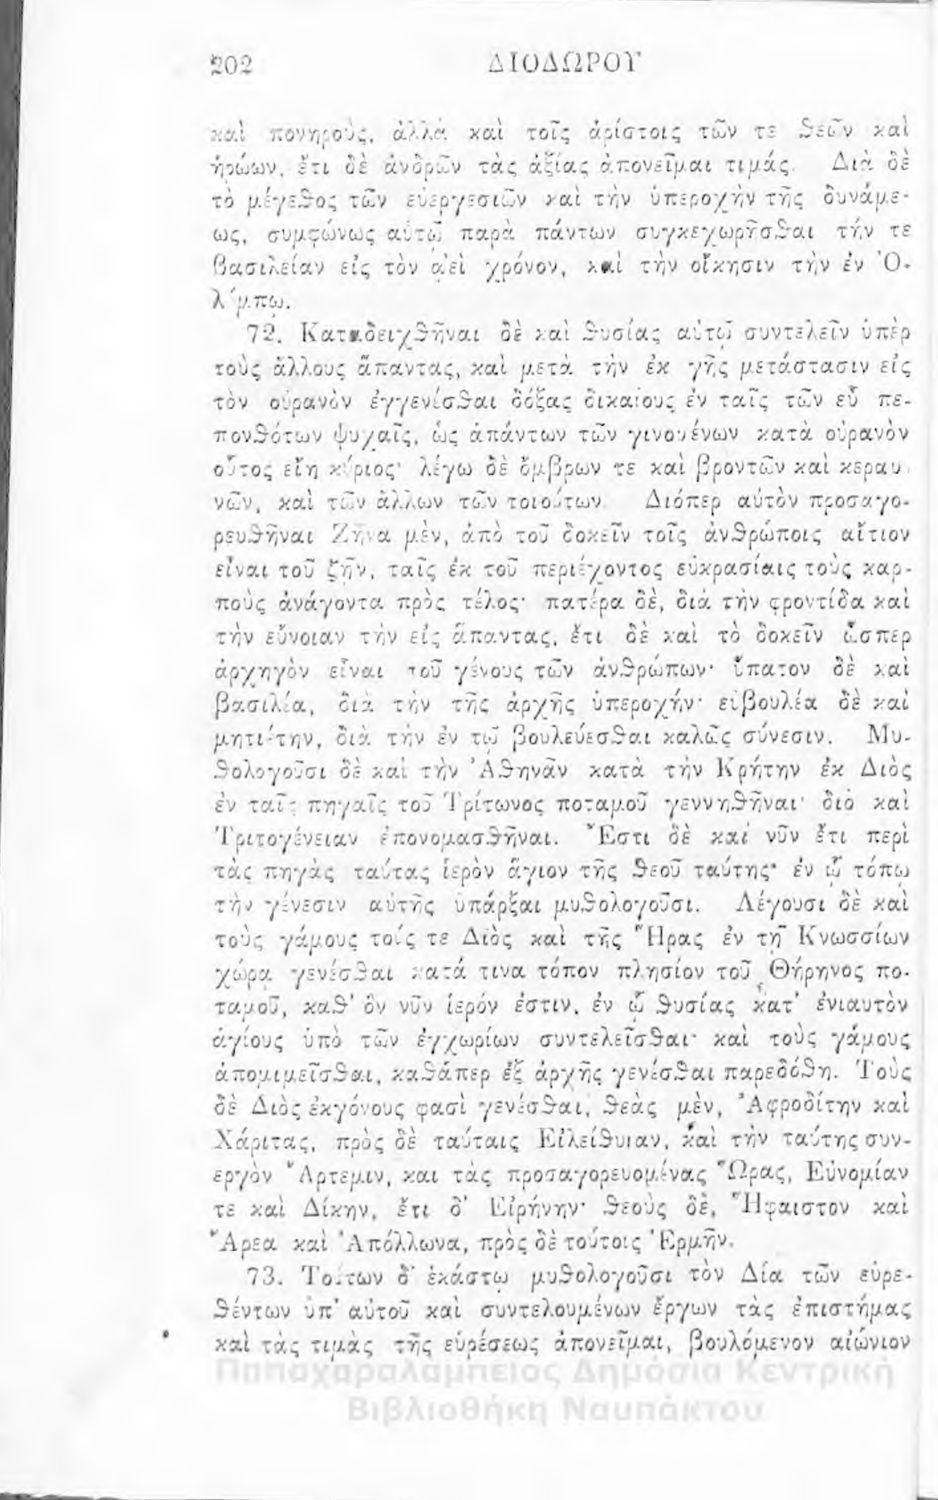 202 ΔΙΟΔΩΡΟΥ
καὶ πονηροὺς, ἀλλὰ καὶ τοῖς ἀρίστοις τῶν τε ϑεῶν καὶ
ἡρώων, ἔτι δὲ ἀνδρῶν τὰς ἀξίας ἀπονεῖμαι τιμάς. Διὰ δὲ
τὸ μέγεϑος τῶν εὐεργεσιῶν καὶ τὴν ὑπεροχὴν τῆς δυνάμε-
ως, συμφώνως αὐτῷ παρὰ πάντων συγκεχωρῆσϑαι τήν τε
βασιλείαν εἰς τὸν ἀεὶ χρόνον, καὶ τὴν οἴκησιν τὴν ἐν Ὀ-
λύμπῳ.
72. Καταδειχϑῆναι δὲ καὶ ϑυσίας αὐτῷ συντελεῖν ὑπὲρ
τοὺς ἄλλους ἅπαντας, καὶ μετὰ τὴν ἐκ γῆς μετάστασιν εἰς
τὸν οὐρανὸν ἐγγενέσϑαι δόξας δικαίους ἐν ταῖς τῶν εὖ πε-
πονϑότων ψυχαῖς, ὡς ἁπάντων τῶν γινομένων κατὰ οὐρανὸν
οὗτος εἴη κύριος· λέγω δὲ ὄμβρων τε καὶ βροντῶν καὶ κεραυ-
νῶν, καὶ τῶν ἄλλων τῶν τοιούτων. Διόπερ αὐτὸν προσαγο-
ρευϑῆναι Ζῆνα μὲν, ἀπὸ τοῦ δοκεῖν τοῖς ἀνϑρώποις αἴτιον
εἶναι τοῦ ζῆν, ταῖς ἐκ τοῦ περιέχοντος εὐκρασίαις τοὺς καρ-
ποὺς ἀνάγοντα πρὸς τέλος· πατέρα δὲ, διὰ τὴν φροντίδα καὶ
τὴν εὔνοιαν τὴν εἰς ἅπαντας, ἔτι δὲ καὶ τὸ δοκεῖν ὥσπερ
ἀρχηγὸν εἶναι τοῦ γένους τῶν ἀνϑρώπων· ὕπατον δὲ καὶ
βασιλέα, διὰ τὴν τῆς ἀρχῆς ὑπεροχήν· εὐβουλέα δὲ καὶ
μητιέτην, διὰ τὴν ἐν τῷ βουλεύεσϑαι καλῶς σύνεσιν. Μυ-
ϑολογοῦσι δὲ καὶ τὴν Ἀϑηνᾶν κατὰ τὴν Κρήτην ἐκ Διὸς
ἐν ταῖς πηγαῖς τοῦ Τρίτωνος ποταμοῦ γεννηϑῆναι· διὸ καὶ
Τριτογένειαν ἐπονομασϑῆναι. Ἔστι δὲ καὶ νῦν ἔτι περὶ
τὰς πηγὰς ταύτας ἱερὸν ἅγιον τῆς ϑεοῦ ταύτης· ἐν ᾧ τόπῳ
τὴν γένεσιν αὐτῆς ὑπάρξαι μυϑολογοῦσι. Λέγουσι δὲ καὶ
τοὺς γάμους τούς τε Διὸς καὶ τῆς Ἥρας ἐν τῇ Κνωσσίων
χώρᾳ γενέσϑαι κατά τινα τόπον πλησίον τοῦ Θήρηνος πο-
ταμοῦ, καϑ' ὃν νῦν ἱερόν ἐστιν, ἐν ᾧ ϑυσίας κατ' ἐνιαυτὸν
ἁγίους ὑπὸ τῶν ἐγχωρίων συντελεῖσϑαι· καὶ τοὺς γάμους
ἀπομιμεῖσϑαι, καϑάπερ ἐξ ἀρχῆς γενέσϑαι παρεδόϑη. Τοὺς
δὲ Διὸς ἐκγόνους φασὶ γενέσϑαι, ϑεὰς μὲν, Ἀφροδίτην καὶ
Χάριτας, πρὸς δὲ ταύταις Εἰλείϑυιαν, καὶ τὴν ταύτης συν-
εργὸν Ἄρτεμιν, και τὰς προσαγορευομένας Ὥρας, Εὐνομίαν
τε καὶ Δίκην, ἔτι δ' Εἰρήνην· ϑεοὺς δὲ, Ἥφαιστον καὶ
Ἄρεα καὶ Ἀπόλλωνα, πρὸς δὲ τούτοις Ἑρμῆν.
73. Τούτων δ' ἑκάστῳ μυϑολογοῦσι τὸν Δία τῶν εὑρε-
ϑέντων ὑπ' αὐτοῦ καὶ συντελουμένων ἔργων τὰς ἐπιστήμας
καὶ τὰς τιμὰς τῆς εὑρέσεως ἀπονεῖμαι, βουλόμενον αἰώνιον
Παπαχαραλάμπειος Δημόσια Κεντρική
Βιβλιοθήκη Ναυπάκτου